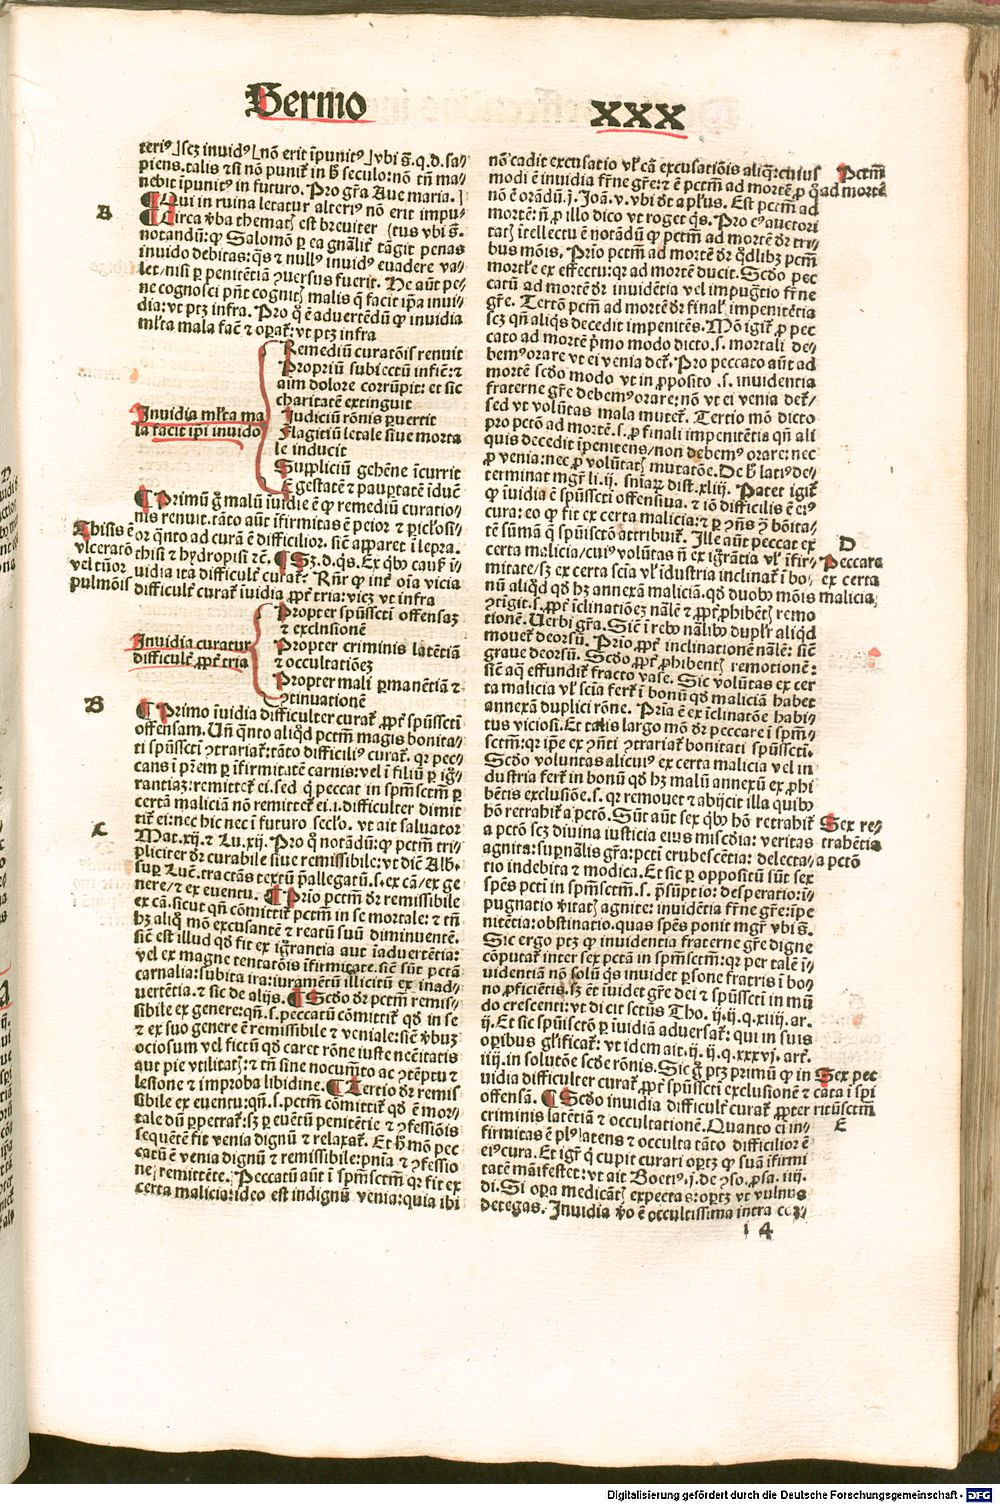 Sermo XXX
teriꝰ⌋scꝫ inuidꝰ⌊nō erit īpunitꝰ⌋vbi s̄.q.d.sa⸗
piens.talis ⁊ si nō punit᷑ in hͦ seculo:nō tn̄ ma⸗
nebit īpunitꝰ in futuro. Pro gr̄a Aue maria.
A
¶ Qui in ruina letatur alteriꝰ nō erit impu⸗
¶ Circa v̄ba thematꝭ est breuiter (tus vbi s̄.
notandū: ꝙ Salomō ꝑ ea gn̄alit᷑ tāgit penas
inuido debitas: q̄s ⁊ nullꝰ inuidꝰ euadere va⸗
let/nisi ꝑ penitētiā ꝯuersus fuerit. He aūt pe⸗
ne cognosci pn̄t cognitꝭ malis q̄ facit ip̄a inui⸗
dia: vt ptꝫ infra. Pro qͦ ē aduertēdū ꝙ inuidia
ml̄ta mala facit ⁊ oꝑat᷑: vt ptꝫ infra
Inuidia ml̄ta ma
la facit ip̄i inuido
Remediū curatōis renuit
Propriū subiectū inficit: ⁊
aīm dolore corrūpit: et sic
charitatē extinguit
Judiciū rōnis ꝑuertit
Flagitiū letale siue morta
le inducit
Suppliciū gehēne īcurrit
Egestatē ⁊ paupertatē īducit
¶ Primū g̊ malū īuidie ē ꝙ remediū curatio⸗
nis renuit. tāto aūt īfirmitas ē peior ⁊ ꝑiclosi⸗
Abisis ē
vlceratō
vel tūor
pulmōis
or qͣnto ad curā ē difficilior. sic̄ apparet ī lepra.
thisi ⁊ hydropisi ⁊c̄. ¶ Sꝫ.d.q̄s. Ex qͥbꝰ causꝭ ī⸗
uidia ita difficult᷑ curat᷑. Rn̄r ꝙ int᷑ oīa vicia
difficult᷑ curat᷑ īuidia ꝓpt᷑ tria: vicꝫ vt infra
Inuidia curatur
difficult᷑ ꝓpt᷑ tria
Propter spūssctī offensaꝫ
⁊ exclusionē
Propter criminis latētiā
⁊ occultatiōeꝫ
Propter mali ꝑmanētiā ⁊
ꝯtinuationē
B
¶ Primo īuidia difficulter curat᷑ ꝓpt᷑ spūssctī
offensam. Un̄ qͣnto aliqd̄ pctm̄ magis bonita⸗
ti spūssctī ꝯtrariat᷑: tāto difficiliꝰ curat᷑. qꝛ pec⸗
cans ī prēm ꝑ īfirmitatē carnis: vel ī filiū ꝑ ig̊⸗
rantiaꝫ: remittet᷑ ei. sed q̄ peccat in spm̄sctm̄ ꝑ
certā maliciā nō remittet᷑ ei .i. difficulter dimit
tit᷑ ei: nec hic nec ī futuro sec̄lo. vt ait saluator
C
Mat.xij. ⁊ Lu.xij. Pro qͦ notādū: ꝙ pctm̄ tri⸗
pliciter dr̄ curabile siue remissibile: vt dic̄ Alb.
suꝑ Luc̄. tractās textū p̄allegatū .s. ex cā/ex ge
nere/⁊ ex euentu. ¶ Prīo pctm̄ dr̄ remissibile
ex cā. sicut qn̄ cōmittit᷑ pctm̄ in se mortale: ⁊ tn̄
hꝫ aliqͦ mō excusantē ⁊ reatū suū diminuentē.
sic̄ est illud qd̄ fit ex ig̊rantia aut īaduertētia:
vel ex magne tentatōis īfirmitate. sic̄ sūt pctā
carnalia: subita ira: iuramētū illicitū ex inad⸗
uertētia. ⁊ sic de alijs. ¶ Scd̄o dr̄ pctm̄ remis⸗
sibile ex genere: qn̄ .s. peccatū cōmittit᷑ qd̄ in se
⁊ ex suo genere ē remissibile ⁊ veniale: sic̄ v̄buꝫ
ociosum vel fictū qd̄ caret rōne iuste nec̄itatis
aut pie vtilitatꝭ: ⁊ tn̄ sine nocumēto ac ꝯtēptu ⁊
lesione ⁊ improba libidine. ¶ Tertio dr̄ remis
sibile ex euentu: qn̄ .s. pctm̄ cōmittit᷑ qd̄ ē mor⸗
tale dū ꝑpetrat᷑: sꝫ ꝑ euētū penitētie ⁊ ꝯfessiōis
sequētē fit venia dignū ⁊ relaxat᷑. Et hͦ mō pec
catū ē venia dignū ⁊ remissibile: pnīa ⁊ ꝯfessio
ne remittēte. Peccatū aūt ī spm̄sctm̄ qꝛ fit ex
certa malicia: ideo est indignū venia: quia ibi
nō cadit excusatio vl̓ cā excusatiōis aliq̄: cuius
modi ē inuidia fr̄ne gr̄e: ⁊ ē pctm̄ ad mortē ꝑ qͦ
Pctm̄
ad mortē
nō ē orādū. j. Joā. v. vbi dr̄ a ꝓlus. Est pctm̄ ad
mortē: n̄ ꝓ illo dico vt roget q̄s. Pro cuiꝰ auctori
tatꝭ ītellectu ē notādū ꝙ pctm̄ ad mortē dr̄ tri⸗
bus mōis. Prīo pctm̄ ad mortē dr̄ qd̄libꝫ pctm̄
mortl̓e ex effectu: qꝛ ad mortē ducit. Scd̄o pec
catū ad mortē dr̄ inuidētia vel impugͣtio fr̄ne
gr̄e. Tertō pctm̄ ad mortē dr̄ final̓ impenitētia
scꝫ qn̄ aliq̄s decedit impenitēs. Mō igit᷑ ꝓ pec
cato ad mortē pͥmo modo dicto .s. mortali de⸗
bemꝰ orare vt ei venia det᷑. Pro peccato aūt ad
mortē scd̄o modo vt in ꝓposito .s. inuidentia
fraterne gr̄e debemꝰ orare: nō vt ei venia det᷑/
sed vt volūtas mala mutet᷑. Tertio mō dicto
pro pctō ad mortē .s. ꝓ finali impenitētis qn̄ ali
quis decedit īpenitens/non debemꝰ orare: nec
ꝓ venia: nec ꝓ volūtatꝭ mutatōe. De hͦ latiꝰ de⸗
terminat mgr̄ li.ij. sn̄iaꝝ dist.xliij. Patet igit᷑
ꝙ īuidia ē spūssctī offensiua. ⁊ iō difficilis ē eiꝰ
cura: eo ꝙ fit ex certa malicia: ⁊ ꝑ ꝯn̄s ꝯͣ bōita⸗
D
tē sūmā q̄ spūisctō attribuit᷑. Ille aūt peccat ex
certa malicia/cuiꝰ volūtas n̄ ex ig̊rātia vl̓ īfir⸗
mitate/sꝫ ex certa scīa vl̓ īdustria inclinat᷑ ī bo⸗
Peccare
ex certa
malicia
nū aliqd̄ qd̄ hꝫ annexā maliciā. qd̄ duobꝰ mōis
ꝯtīgit .s. ꝓpt᷑ īclinatiōeꝫ nālē ⁊ ꝓpt᷑ ꝓhibētꝭ remo
tionē. Uerbi gr̄a. Sic̄ ī rebꝰ nālibꝰ dupl̓r aliqd̄
mouet᷑ deorsū. Prīo ꝓpt᷑ inclinationē nālē: sic̄
graue deorsū. Scd̄o ꝓpt᷑ ꝓhibentꝭ remotionē:
sic̄ aq̄ effundit᷑ fracto vase. Sic volūtas ex cer
ta malicia vl̓ scīa fert᷑ ī bonū qd̄ maliciā habet
annexā duplici rōne. Pria ē ex īclinatōe habi⸗
tus viciosi. Et talis largo mō dr̄ peccare ī spm̄⸗
sctm̄: qꝛ ip̄e ex ꝯn̄ti ꝯtrariat᷑ bonitati spūssctī.
Scd̄o voluntas alicuiꝰ ex certa malicia vel in
dustria fert᷑ in bonū qd̄ hꝫ malū annexū ex ꝓhi
bētis exclusiōe .s. qꝛ remouet ⁊ abijcit illa quibꝰ
hō retrahit᷑ a pctō. Sūt aūt sex qͥbꝰ hō retrahit᷑
Sex re⸗
trahētia
a pctō
a pctō scꝫ diuina iusticia eius misc̄dia: veritas
agnita: suꝑnālis gr̄a: pcti erubescētia: delecta⸗
tio indebita ⁊ modica. Et sic ꝑ oppositū sūt sex
spēs pcti in spm̄sctm̄ .s. p̄sūptio: desperatio: ī⸗
pugnatio v̄itatꝭ agnite: inuidētia fr̄ne gr̄e: īpe
nitētia: obstinatio. quas spēs ponit mgr̄ vbi s̄.
Sic ergo ptꝫ ꝙ inuidentia fraterne gr̄e digne
cōputat᷑ inter sex pctā in spm̄sctm̄: qꝛ per talē ī⸗
uidentiā nō solū q̄s inuidet ꝑsone fratris ī bo⸗
no ꝓficiētis. sꝫ et īuidet gr̄e dei ⁊ spūssctī in mū
do crescenti: vt dicit sctūs Tho. ij.ij.q.xiiij.ar.
ij. Et sic spūisctō ꝑ īuidiā aduersat᷑: qui in suis
oꝑibus gl̓ificat᷑: vt idem ait. ij.ij.q.xxxvj. art̄.
iiij. in solutōe scd̄e rōnis. Sic g̊ ptꝫ primū ꝙ in
Sex pec
cata ī spi
ritūsctm̄
uidia difficulter curat᷑ ꝓpt᷑ spūssctī exclusionē ⁊
offensā. ¶ Scd̄o inuidia difficult᷑ curat᷑ propter
E
criminis latētiā ⁊ occultationē. Quanto ei in⸗
firmitas ē plꝰ latens ⁊ occulta tāto difficilior ē
eiꝰ cura. Et igit᷑ q̄ cupit curari oportꝫ ꝙ suā īfirmi
tatē māifestet: vt ait Boetiꝰ. j. de ꝯso. ꝓsa. iiij.
di. Si oꝑa medicātꝭ expectas: oportꝫ vt vulnus
detegas. Inuidia v̄o ē occultissima intra cor⸗
i 4
Digitalisierung gefördert durch die Deutsche Forschungsgemeinschaft - DFG